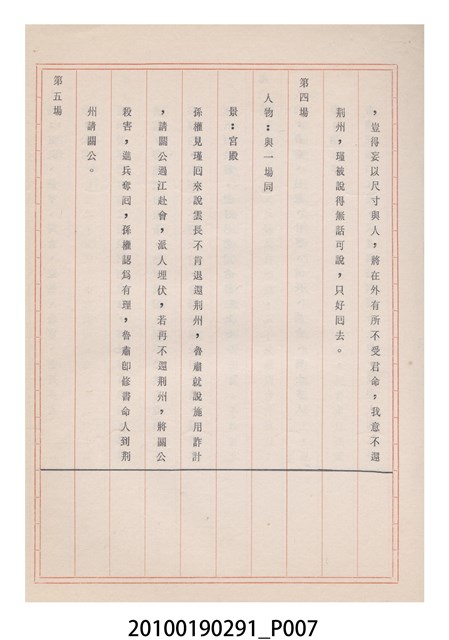 ，豈得妄以尺寸與人，將在外有所不受君命，我意不還
荆州，瑾被說得無話可說，只好囘去。
第四場
人物：與一場同
景：宮殿
孫權見瑾囘來說雲長不肯退還荆州，魯肅就說施用詐計
，請關公過江赴會，派人埋伏，若再不還荆州，將關公
殺害，進兵奪囘，孫權認爲有理，魯肅卽修書命人到荆
州請關公。
第五場
20100190291_P007